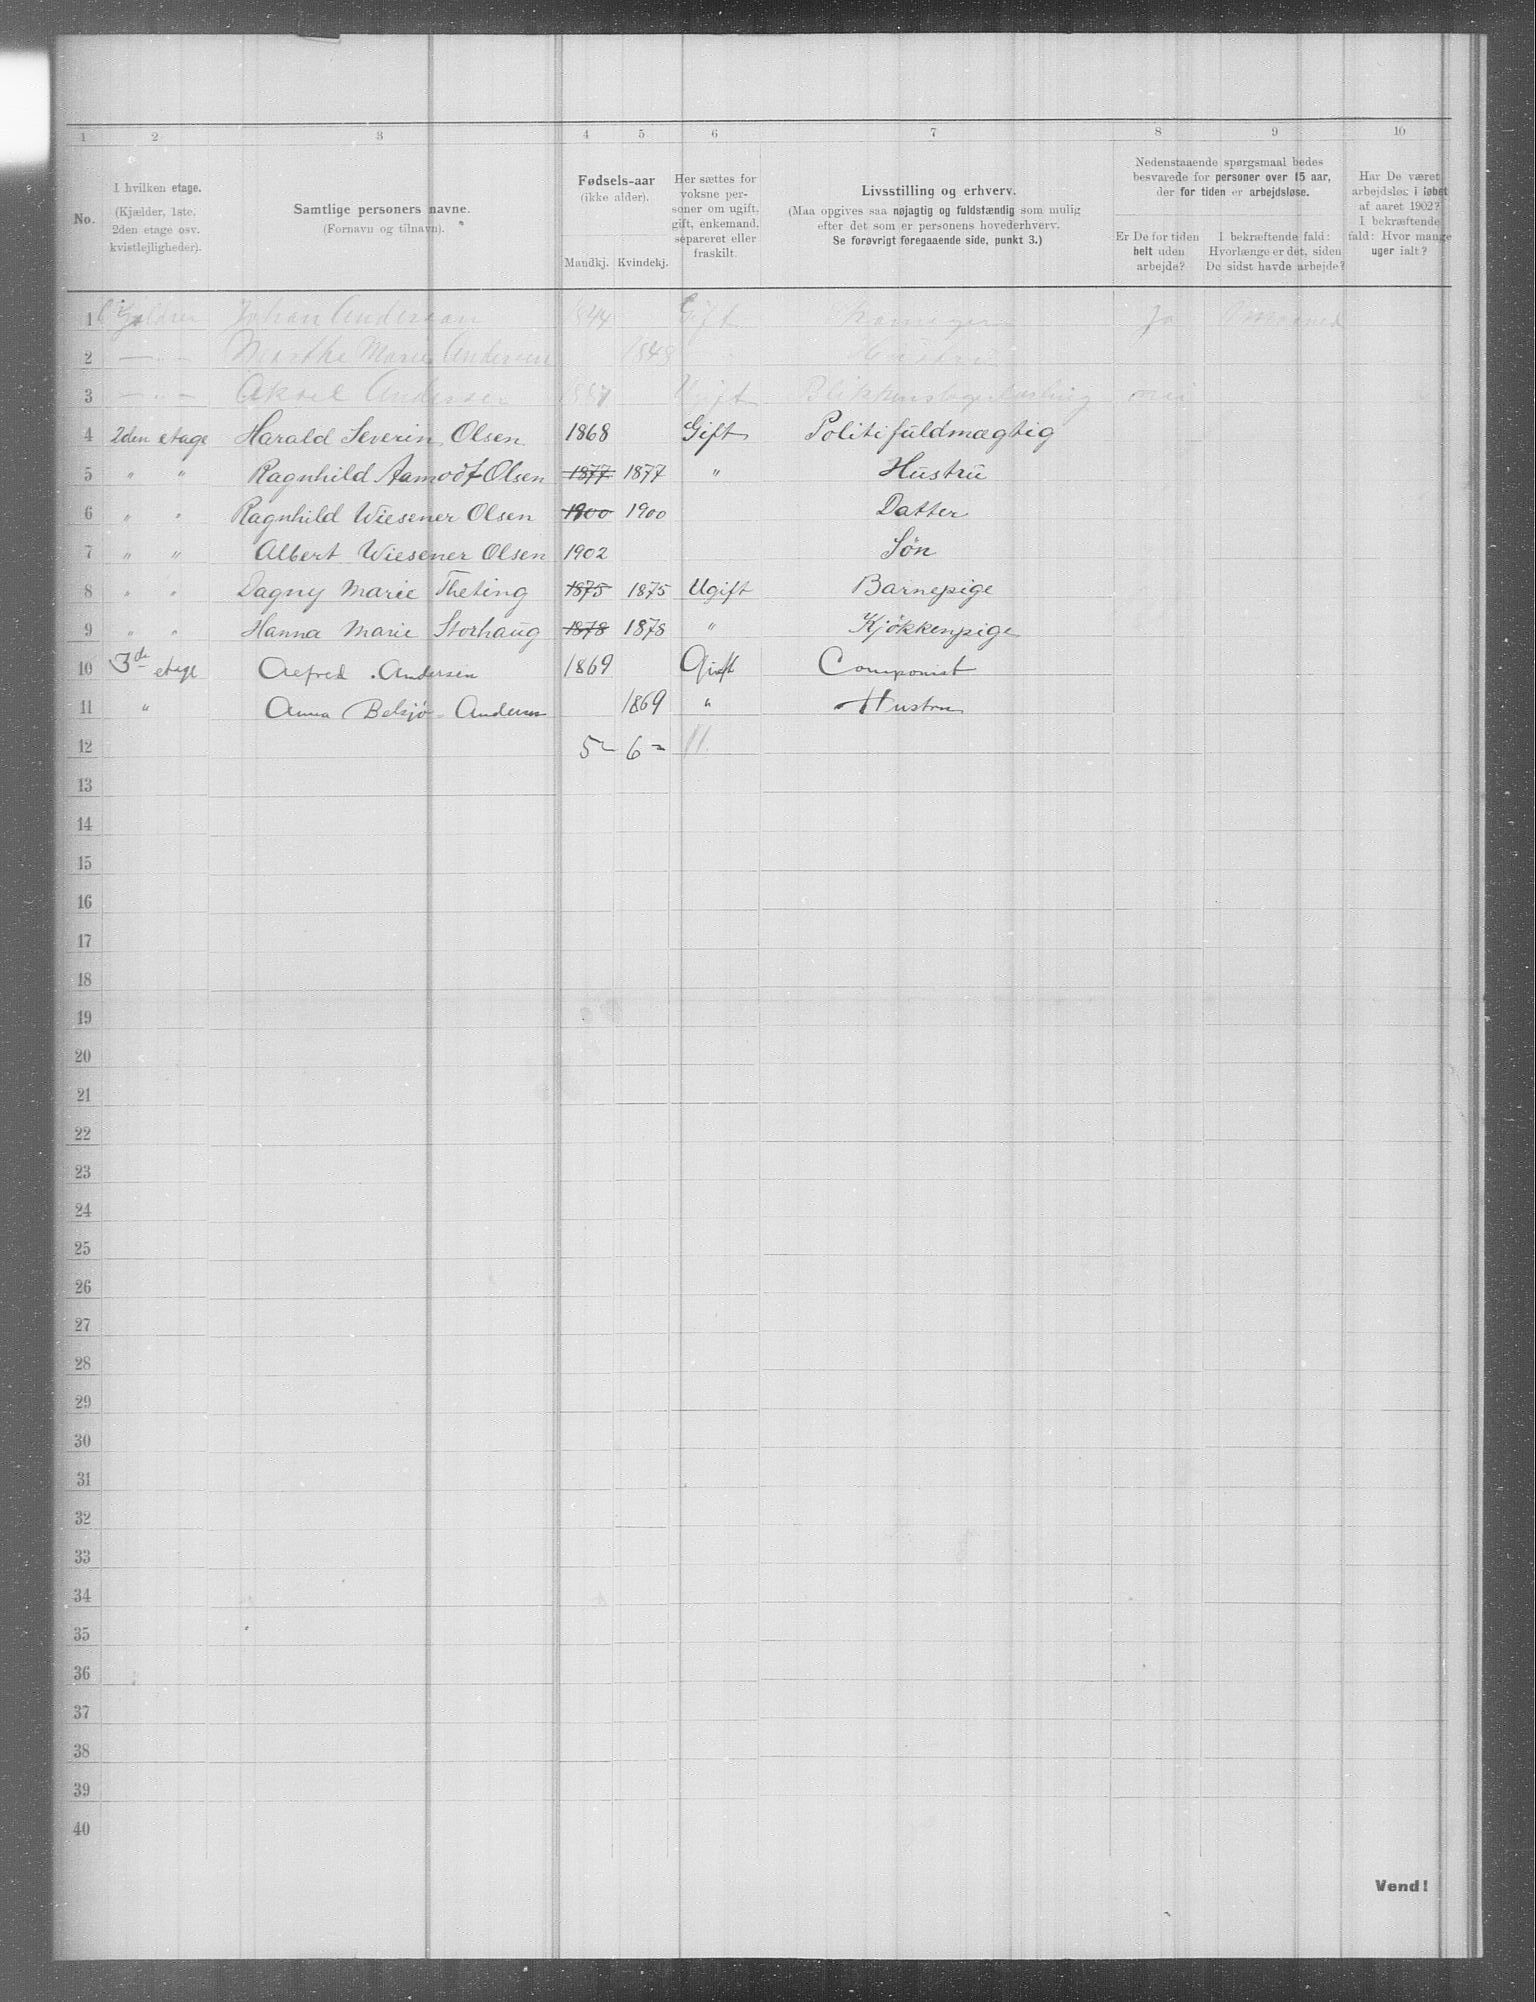 1 2 3 4 5 6 7 8 9 10
No.
I hvilken etage.
(Kjælder, 1ste.
2den etage osv.
kvistlejligheder).
Samtlige personers navne.
(Fornavn og tilnavn).
Fødsels-aar
(ikke alder).
Mandkj. Kvindekj.
Her sættes for
voksne per-
soner om ugift,
gift, enkemand,
separeret eller
fraskilt.
Livsstilling og erhverv.
(Maa opgives saa nøjagtig og fuldstændig som mulig
efter det som er personens hovederhverv.
Se forøvrigt foregaaende side, punkt 3.)
Nedenstaaende spørgsmaal bedes
besvarede for personer over 15 aar,
der for tiden er arbejdsløse.
Er De for tiden
helt uden
arbejde?
I bekræftende fald:
Hvorlænge er det, siden
De sidst havde arbejde?
Har De været
arbejdsløs i løbet
af aaret 1902?
I bekræftende
fald: Hvor mange
uger ialt?
1 Johan Andersen 1844 Gift Ja
2 — " — Marthe Marie Andersen 1848 Hustru
3 — " — Aksel Andersen Ugift nei
4 2den etage Harald Severin Olsen 1868 Gift Politifuldmægtig
5 " " Ragnhild Aamodt Olsen 1877 1877 " Hustru
6 " " Ragnhild Wiesener Olsen 1900 1900 Datter
7 " " Albert Wiesener Olsen 1902 Søn
8 " " Dagny Marie Theting 1875 1875 Ugift Barnepige
9 " " Hanna Marie Storhaug 1878 1878 " Kjøkkenpige
10 3de etage Alfred Andersen 1869 Gift Componist
11 " Anna Belsjø Andersen 1869 " Hustru
12 5 - 6 - 11.
13
14
15
16
17
18
19
20
21
22
23
24
25
26
27
28
29
30
31
32
33
34
35
36
37
38
39
40
Vend!